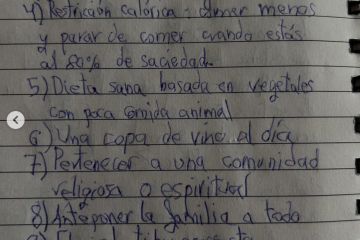 4) Restricción calórica: comer menos
y parar de comer cuando estás
al 80% de saciedad.
5) Dieta sana basada en vegetales
con poca comida animal
6) Una copa de vino al día
7) Pertenecer a una comunidad
religiosa o espiritual
8) Anteponer la familia a todo
9)